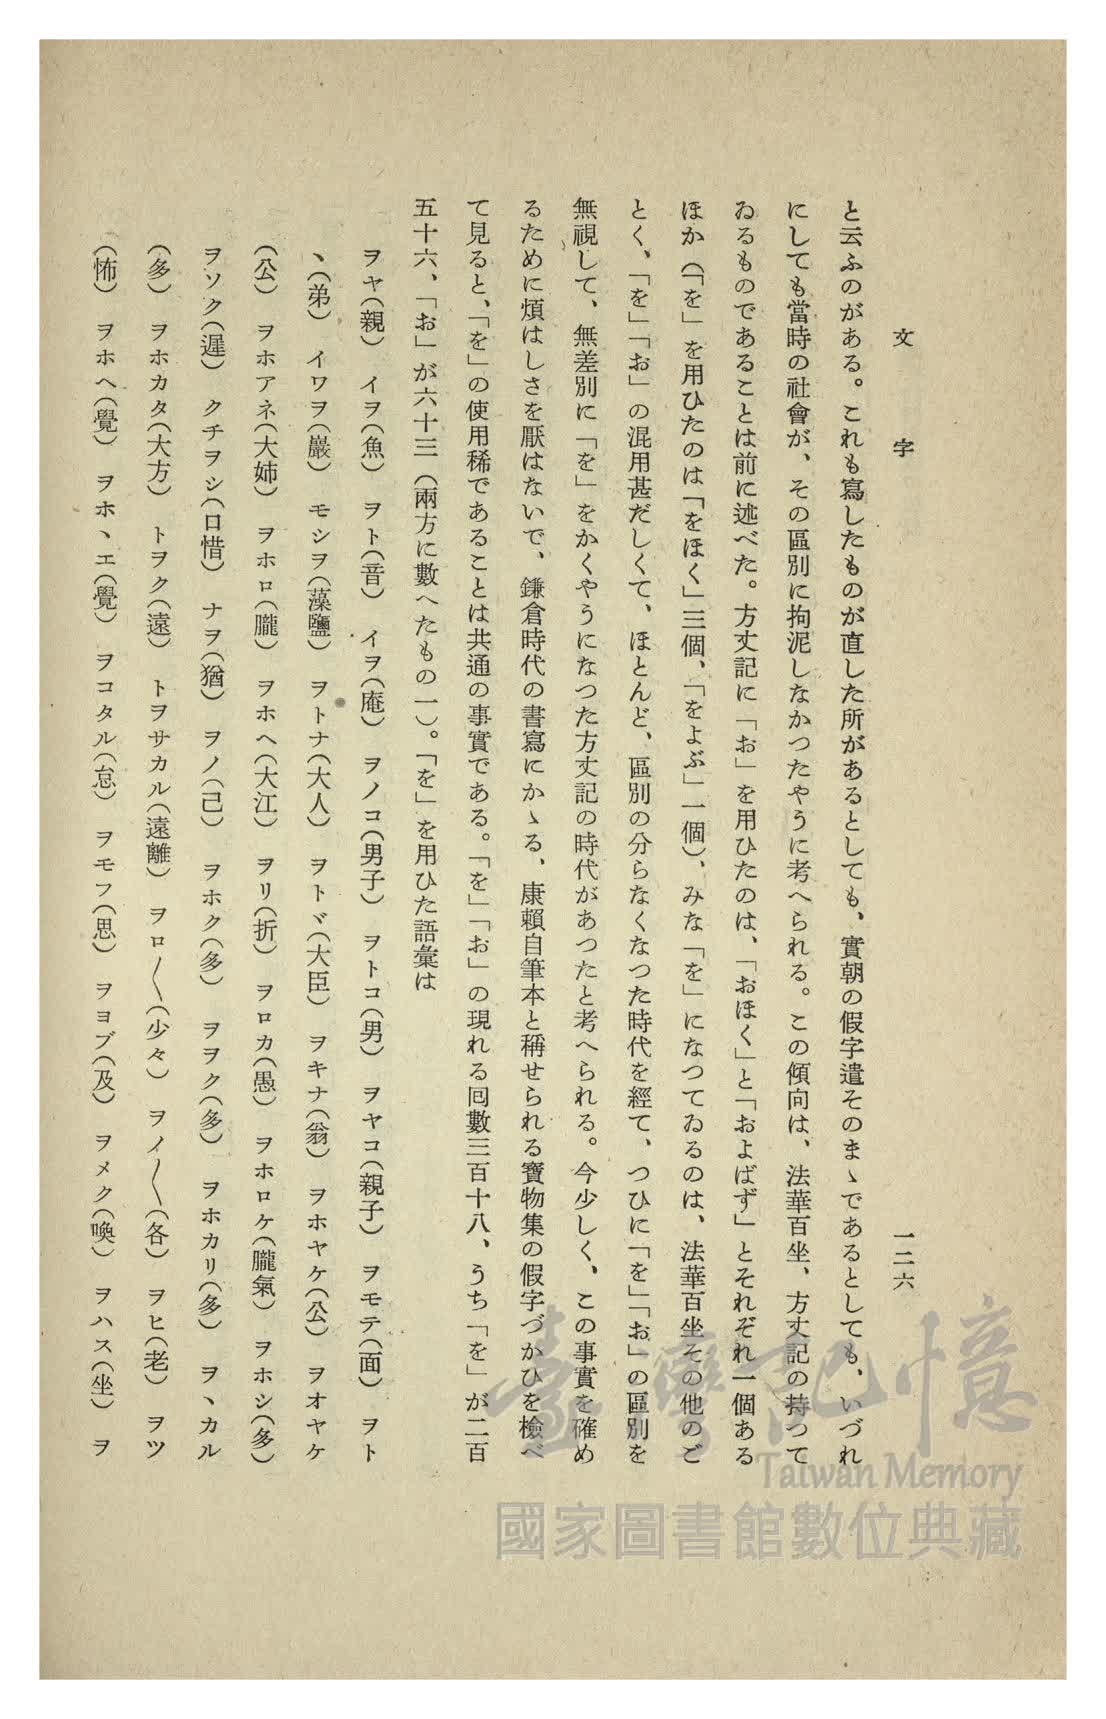 文字
一二六
と云ふのがある。これも寫したものが直した所があるとしても、實朝の假字遣そのまゝであるとしても、いづれ
にしても當時の社會が、その區別に拘泥しなかつたやうに考へられる。この傾向は、法華百坐、方丈記の持つて
ゐるものであることは前に述べた。方丈記に「お」を用ひたのは、「おほく」と「およばず」とそれぞれ一個ある
ほか（「を」を用ひたのは「をほく」三個、「をよぶ」一個）、みな「を」になつてゐるのは、法華百坐その他のご
とく、「を」「お」の混用甚だしくて、ほとんど、區別の分らなくなつた時代を經て、つひに「を」「お」の區別を
無視して、無差別に「を」をかくやうになつた方丈記の時代があつたと考へられる。今少しく、この事實を確め
るために煩はしさを厭はないで、鎌倉時代の書寫にかゝる、康賴自筆本と稱せられる寶物集の假字づかひを檢べ
て見ると、「を」の使用稀であることは共通の事實である。「を」「お」の現れる囘數三百十八、うち「を」が二百
五十六、「お」が六十三（兩方に數へたもの一）。「を」を用ひた語彙は
ヲヤ（親） イヲ（魚） ヲト（音） イヲ（庵） ヲノコ（男子） ヲトコ（男） ヲヤコ（親子） ヲモテ（面） ヲト
ヽ（弟） イワヲ（巖） モシヲ（藻鹽） ヲトナ（大人） ヲトヾ（大臣） ヲキナ（翁） ヲホヤケ（公） ヲオヤケ
（公） ヲホアネ（大姉） ヲホロ（朧） ヲホヘ（大江） ヲリ（折） ヲロカ（愚） ヲホロケ（朧氣） ヲホシ（多）
ヲソク（遲） クチヲシ（口惜） ナヲ（猶） ヲノ（己） ヲホク（多） ヲヲク（多） ヲホカリ（多） ヲヽカル
（多） ヲホカタ（大方） トヲク（遠） トヲサカル（遠離） ヲロ〱（少々） ヲノ〱（各） ヲヒ（老） ヲツ
（怖） ヲホヘ（覺） ヲホヽエ（覺） ヲコタル（怠） ヲモフ（思） ヲヨブ（及） ヲメク（喚） ヲハス（坐） ヲ
臺灣記憶
Taiwan Memory
國家圖書館數位典藏